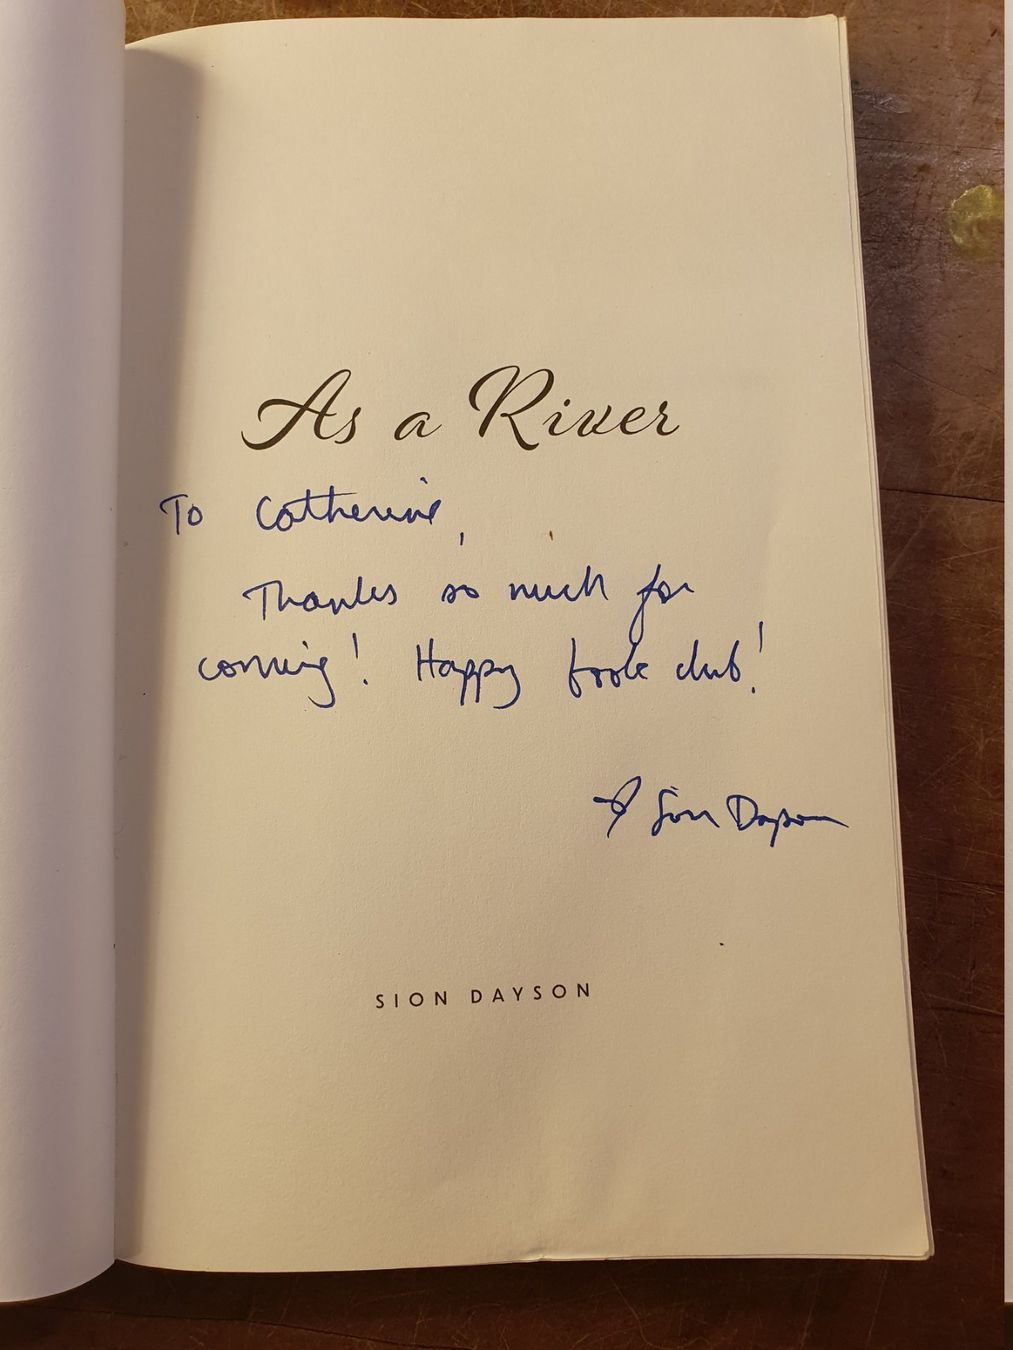 As a River
To Catherine,
Thanks so much for
coming! Happy book club!
Sion Dayson
SION DAYSON